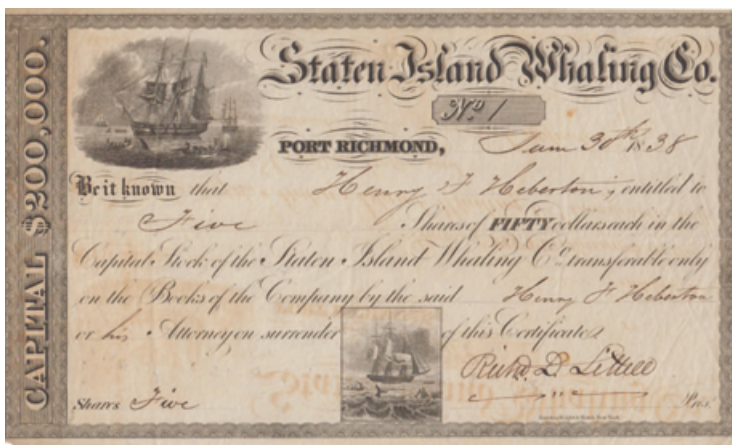 CAPITAL $200,000.
Staten Island Whaling Co.
No. 1
PORT RICHMOND, 30th 1838
Be it known that Henry F Heberton is entitled to
Five Shares of FIFTY dollars each in the
Capital Stock of the Staten Island Whaling Co. transferable only
on the Books of the Company by the said Henry F Heberton
or his Attorney on surrender of this Certificate
Richd. D Littell
Shares Five Pres.